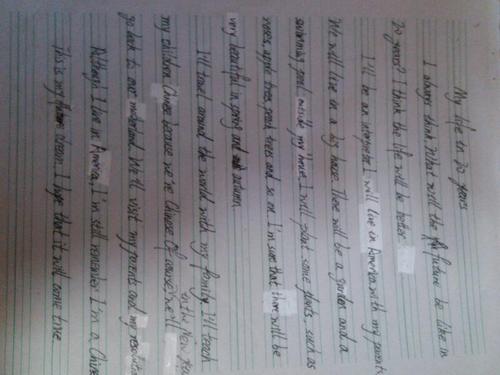 My life in 20 years
I always think: What will the future be like in
20 years? I think the life will be better.
I'll be an
I will live in America with my parents
We will live in a big house. There will be a garden and a
swimming pool outside my house. I will plant some plants, such as
roses, apple trees, peach trees and so on. I'm sure that there will be
very beautiful in spring and autumn.
I'll travel around the world with my family. I'll teach
my children Chinese because we're Chinese. Of course we'll
on the New
go back to our motherland. We'll visit my parents and my
Although I live in America, I'm still remember I'm a Chine
This is my dream. I hope that it will come true.